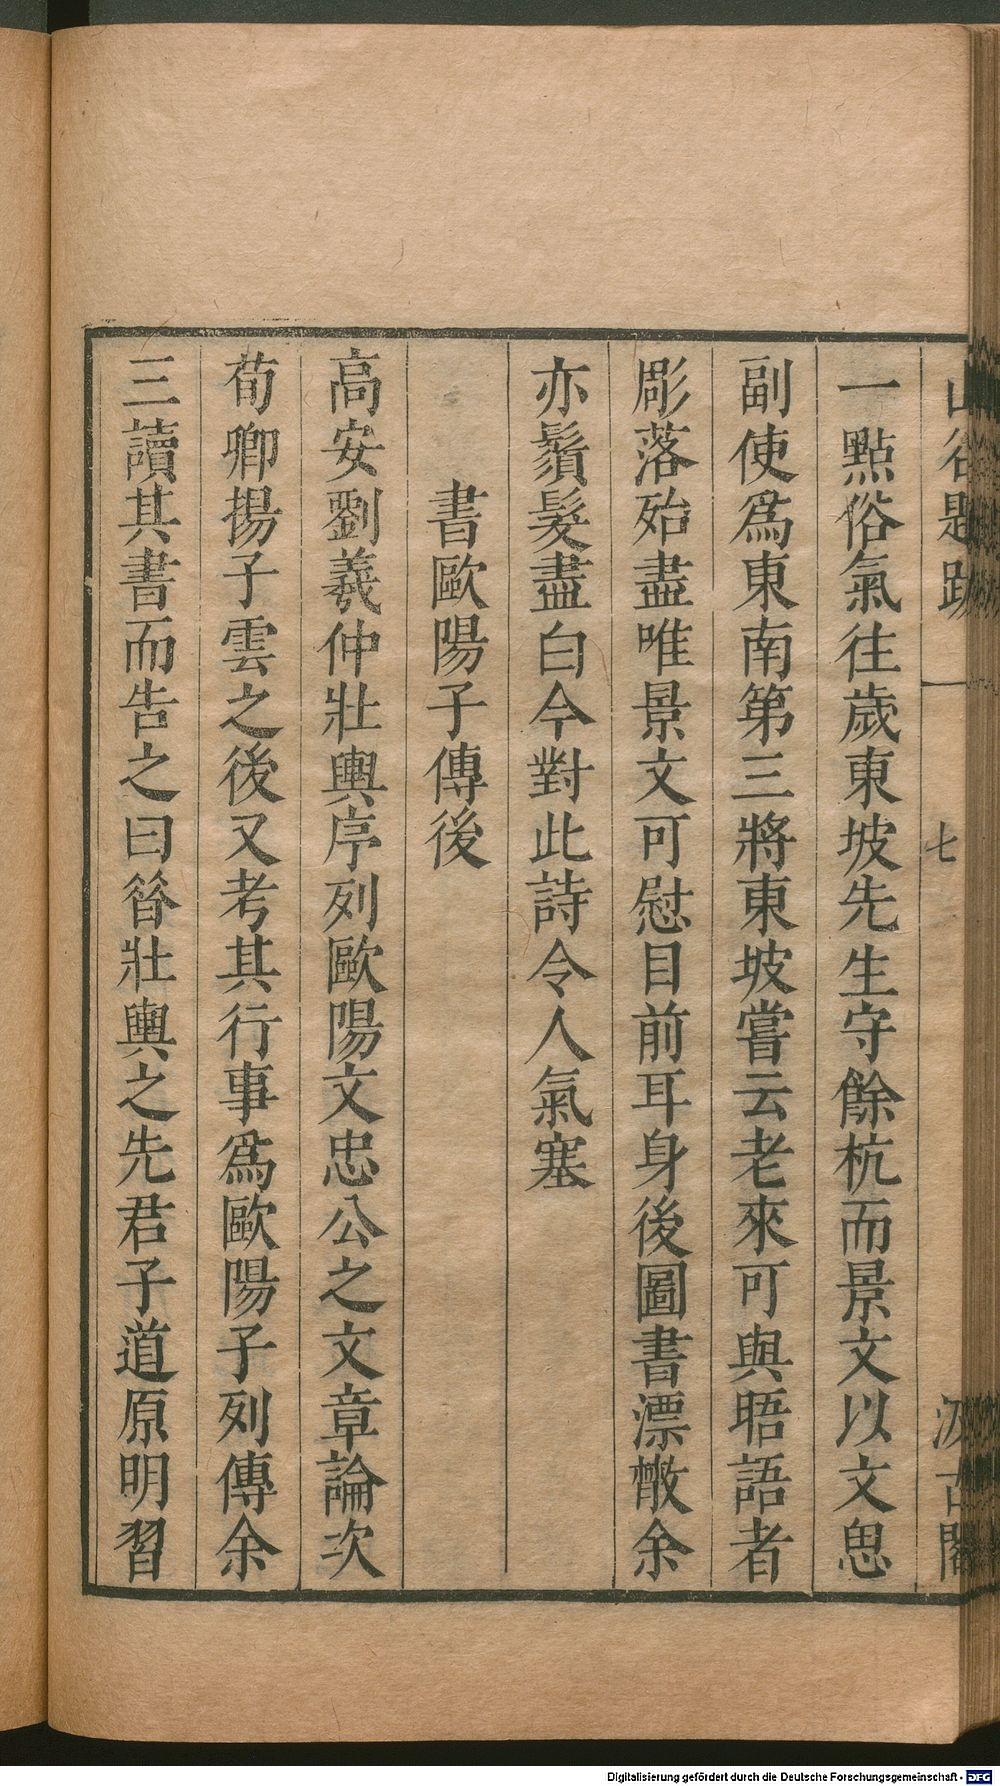 山谷題跋 一 七 汲古閣
一點俗氣往歲東坡先生守餘杭而景文以文思
副使爲東南第三將東坡嘗云老來可與晤語者
彫落殆盡唯景文可慰目前耳身後圖書漂散余
亦鬚髮盡白今對此詩令人氣塞
書歐陽子傳後
高安劉羲仲壯輿序列歐陽文忠公之文章論次
荀卿揚子雲之後又考其行事爲歐陽子列傳余
三讀其書而告之曰昝壯輿之先君子道原明習
Digitalisierung gefördert durch die Deutsche Forschungsgemeinschaft - DFG